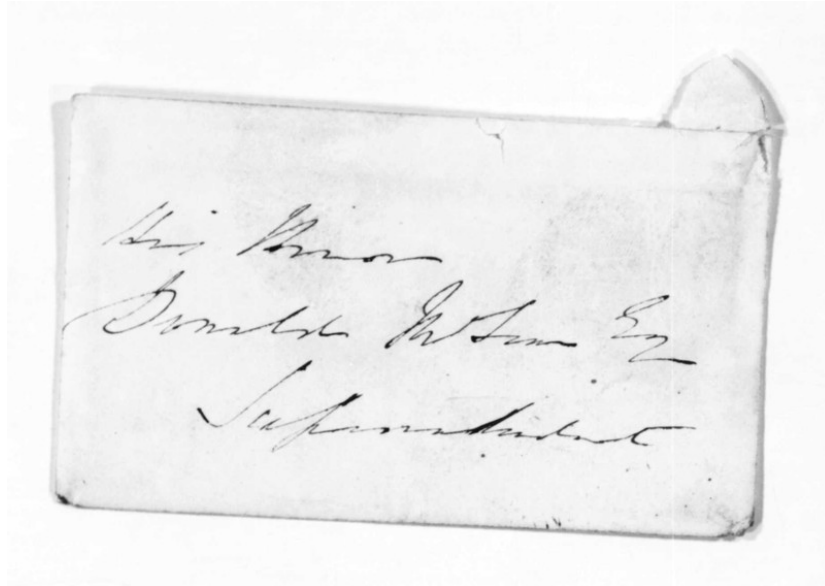 His Honor
Donald McLean Esq
Superintendent